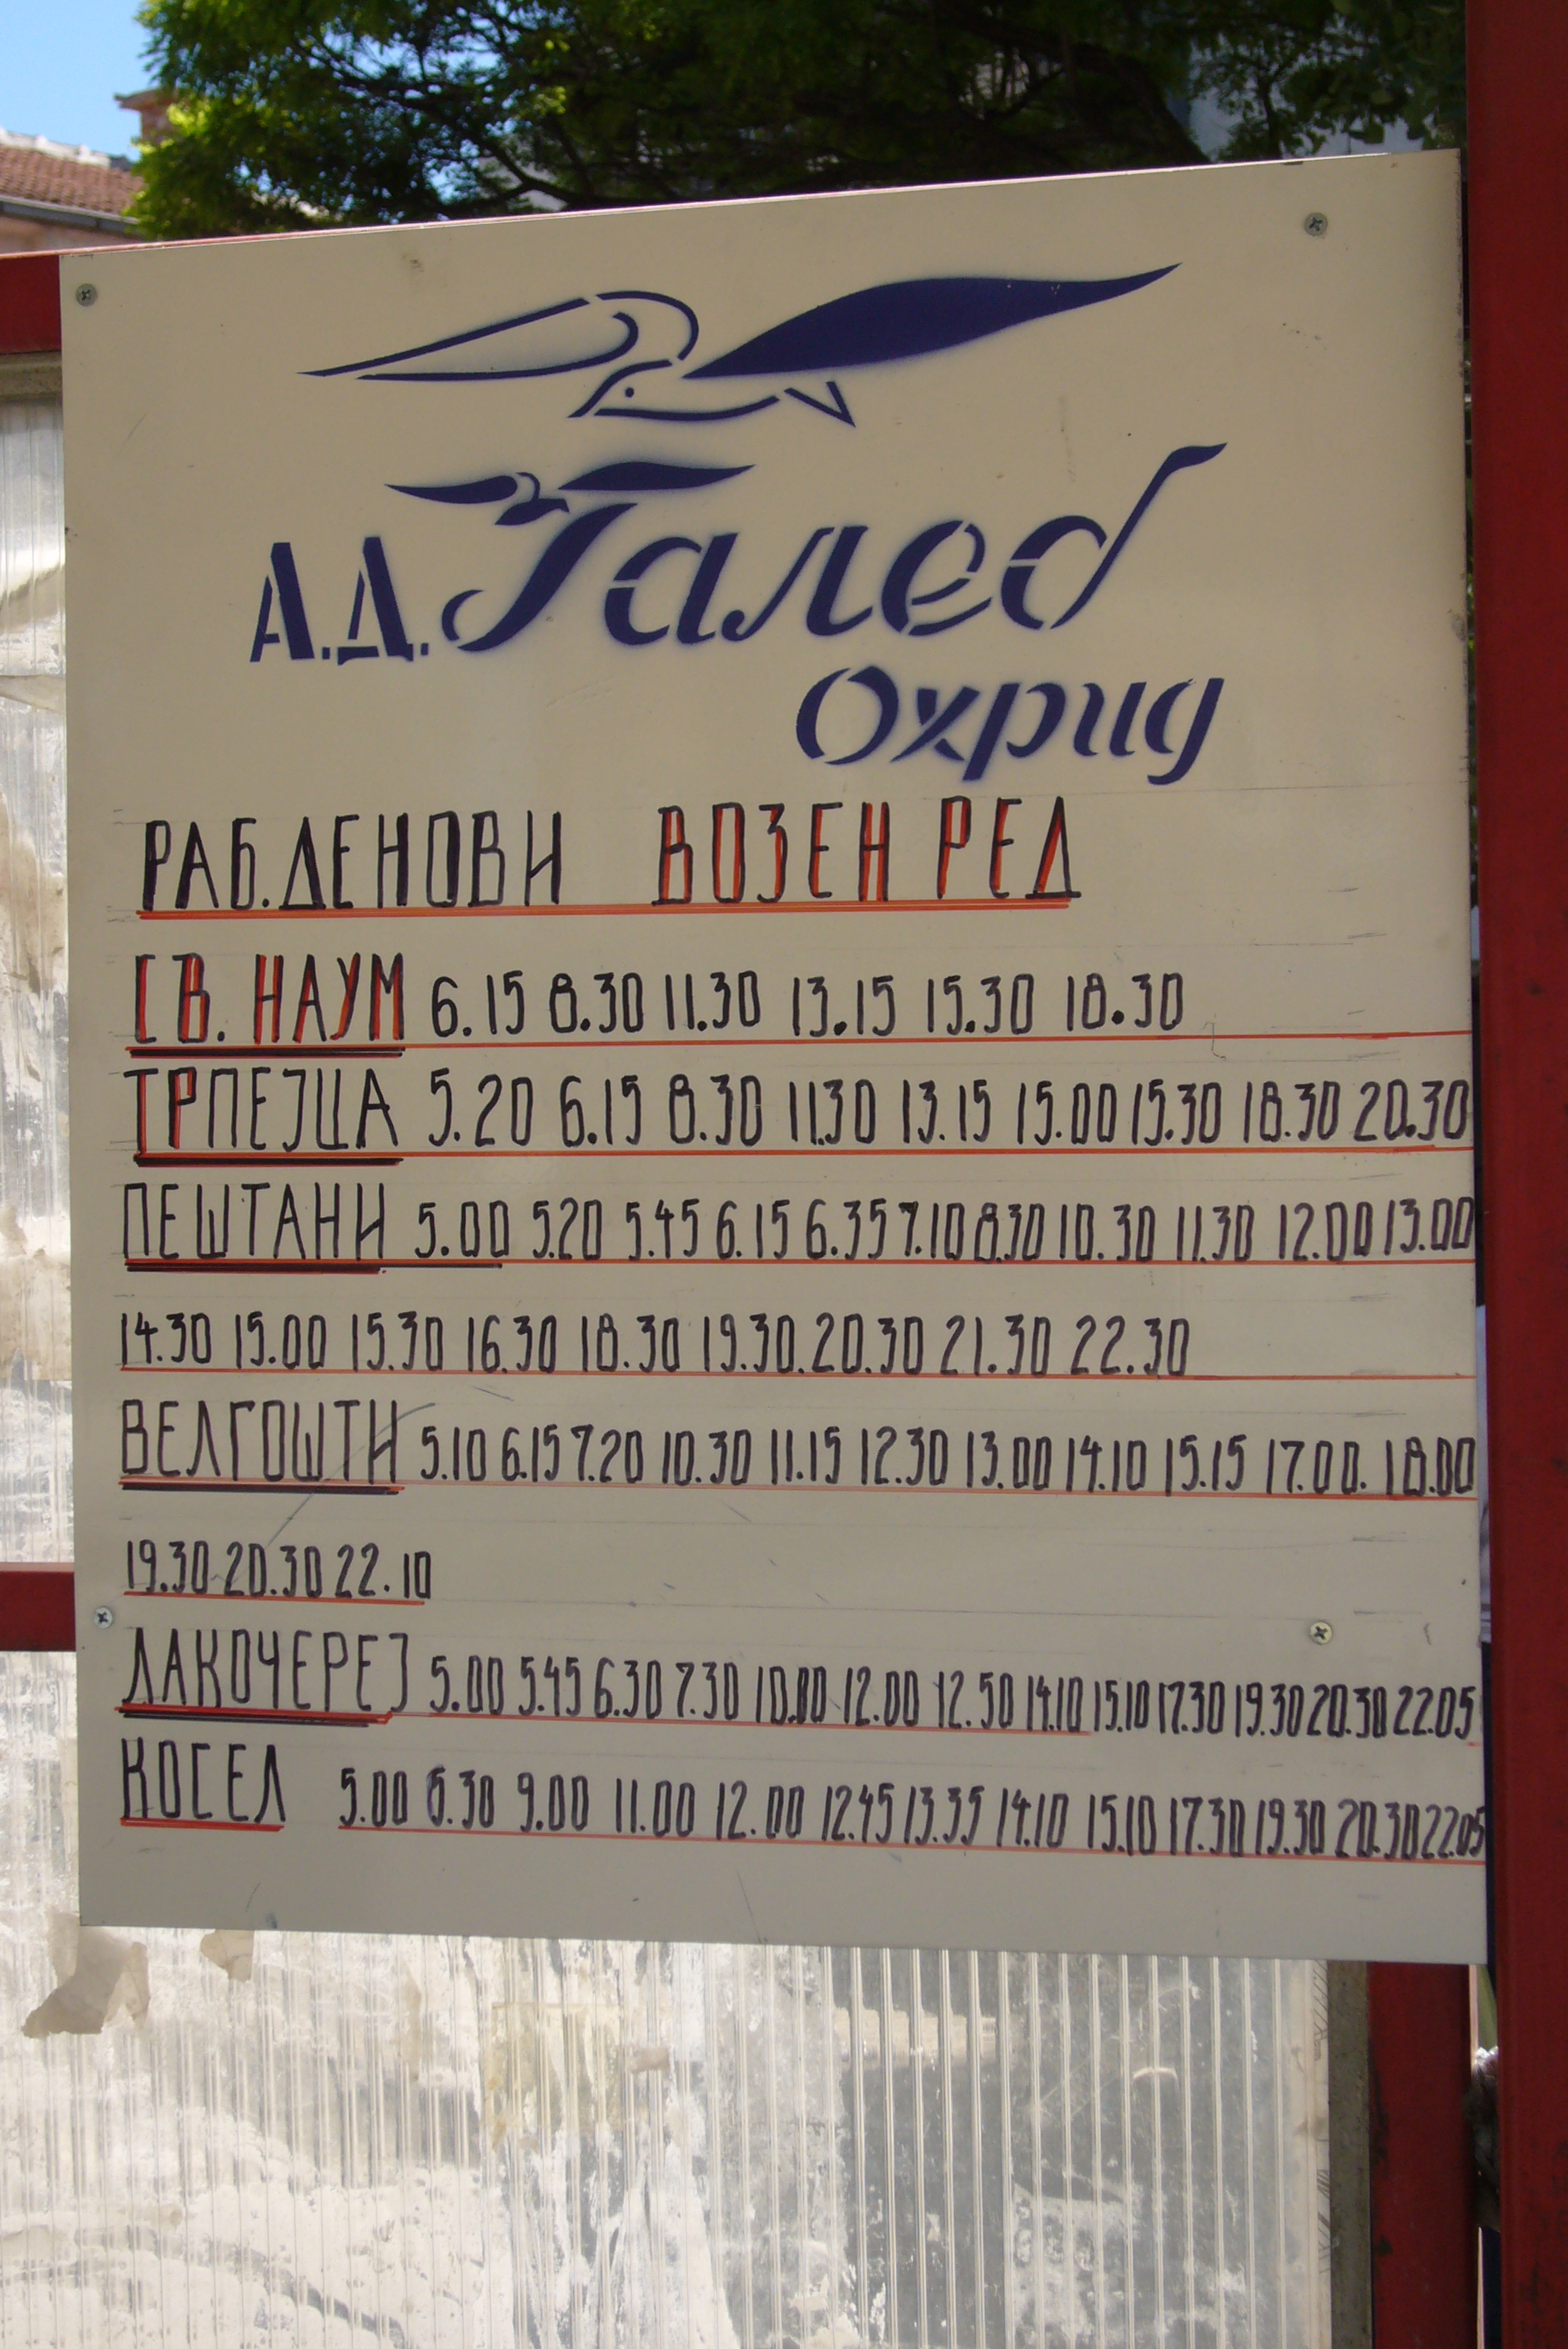 А.Д. Галеб
Охрид
РАБ.ДЕНОВИ ВОЗЕН РЕД
СВ. НАУМ 6.15 8.30 11.30 13.15 15.30 18.30
ТРПЕЈЦА 5.20 6.15 8.30 11.30 13.15 15.00 15.30 18.30 20.30
ПЕШТАНИ 5.00 5.20 5.45 6.15 6.35 7.10 8.30 10.30 11.30 12.00 13.00
14.30 15.00 15.30 16.30 18.30 19.30. 20.30 21.30 22.30
ВЕЛГОШТИ 5.10 6.15 7.20 10.30 11.15 12.30 13.00 14.10 15.15 17.00. 18.00
19.30 20.30 22.10
ЛАКОЧЕРЕЈ 5.00 5.45 6.30 7.30 10.00 12.00 12.50 14.10 15.10 17.30 19.30 20.30 22.05
КОСЕЛ 5.00 9.00 11.00 12.00 12.45 13.35 14.10 15.10 17.30 19.30 20.30 22.05